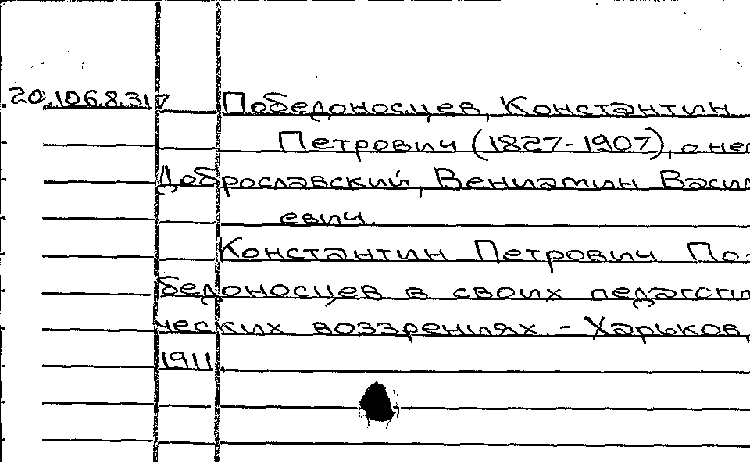 20.106.8.317 Победоносцев, Константин
Петрович (1827-1907), о нем
Доброславский, Вениамин Васил
евич.
Константин Петрович По-
бедоносцев в своих педагоги
ческих воззрениях - Харьков,
1911